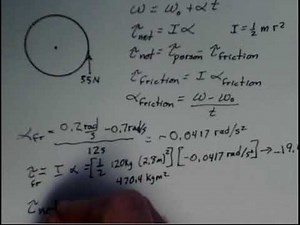 ω = ω₀ + αt
τnet = Iα    I = ½ m r²
τnet = τperson - τfriction
55N
τfriction = I αfriction
αfriction = (ω - ω₀) / t
αfr = (0.2 rad/s - 0.7 rad/s) / 12s = -0.0417 rad/s²
τfr = I α = [½ 120kg (2.8m)²] [-0.0417 rad/s²] → -19.
470.4 kgm²
τnet